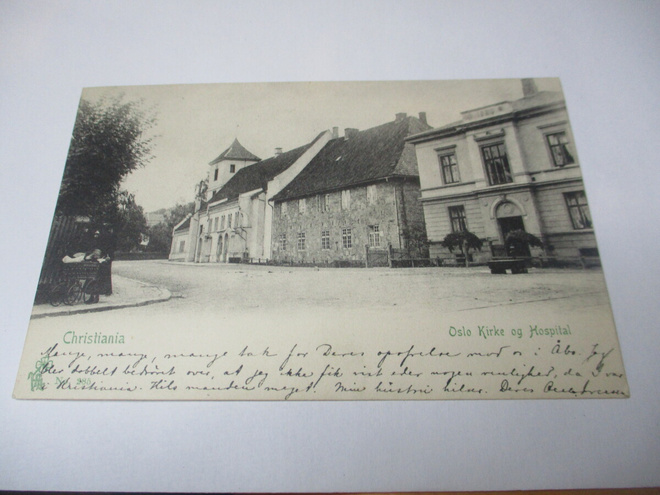 Christiania
Oslo Kirke og Hospital
Mange, mange, mange tak for Deres opofrelse mod os i Åbo. Jeg
blev dobbelt bedrövt over, at jeg ikke fik vist eder nogen venlighed, da I var
i Kristiania. Hils manden meget. Min hustru hilser. Deres
No. 260